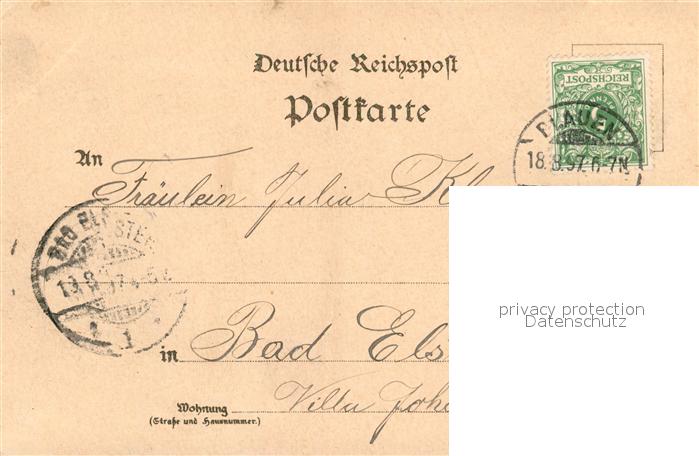 Deutsche Reichspost
Postkarte
REICHSPOST
PLAUEN
18.8.97.6-7N.
An Fräulein Julia Kl
BAD ELSTER
19.8.97
1
in Bad Els
Villa Joh
Wohnung
(Straße und Hausnummer.)
privacy protection
Datenschutz